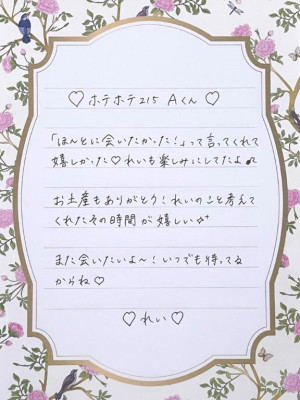 ♡ホテホテ215 Aくん♡
「ほんとに会いたかった！」って言ってくれて
嬉しかった♡れいも楽しみにしてたよ♪
お土産もありがとう！れいのこと考えて
くれたその時間が嬉しい✨
また会いたいよ〜！いつでも待ってる
からね♡
♡れい♡